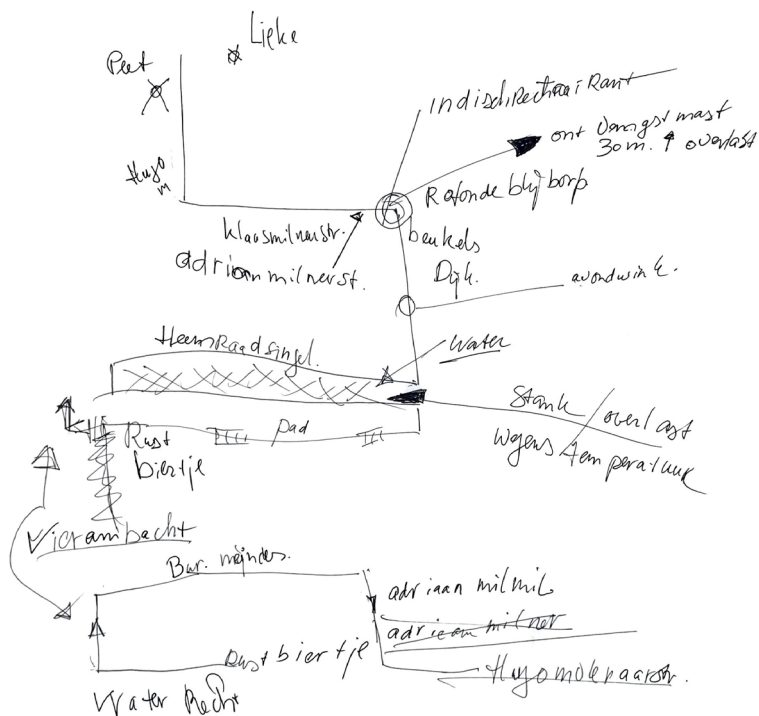 Lieke
Peet
Hugo
m
Indisch Restaurant
ont vangst mast
30 m. overlast
Rotonde blijdorp
klaasmilnerstr.
adriaan milnerst.
beukels
Dijk.
avondwink.
HeemRaadsingel.
Water
Stank / overlast
wegens temperatuur
pad
Rust
biertje
Vierambacht
Bur. meindes.
adriaan milmil
adriaan milner
Rust biertje
Hugomolenaarstr.
Water Recht